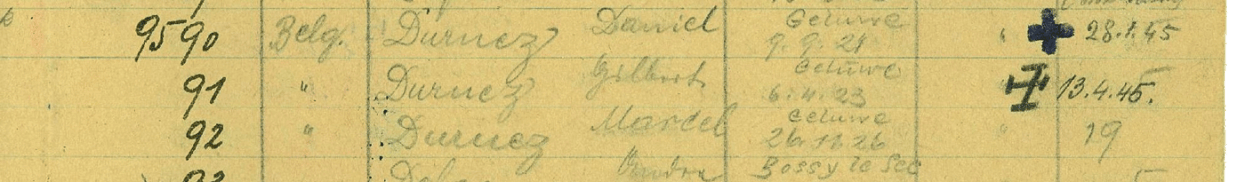 9590 Belg. Durnez Daniel Geluwe 9.9.21 " 28.1.45
91 " Durnez Gilbert Geluwe 6.4.23 13.4.45.
92 " Durnez Marcel Geluwe 26.11.26 " 19
Bossy le Sec